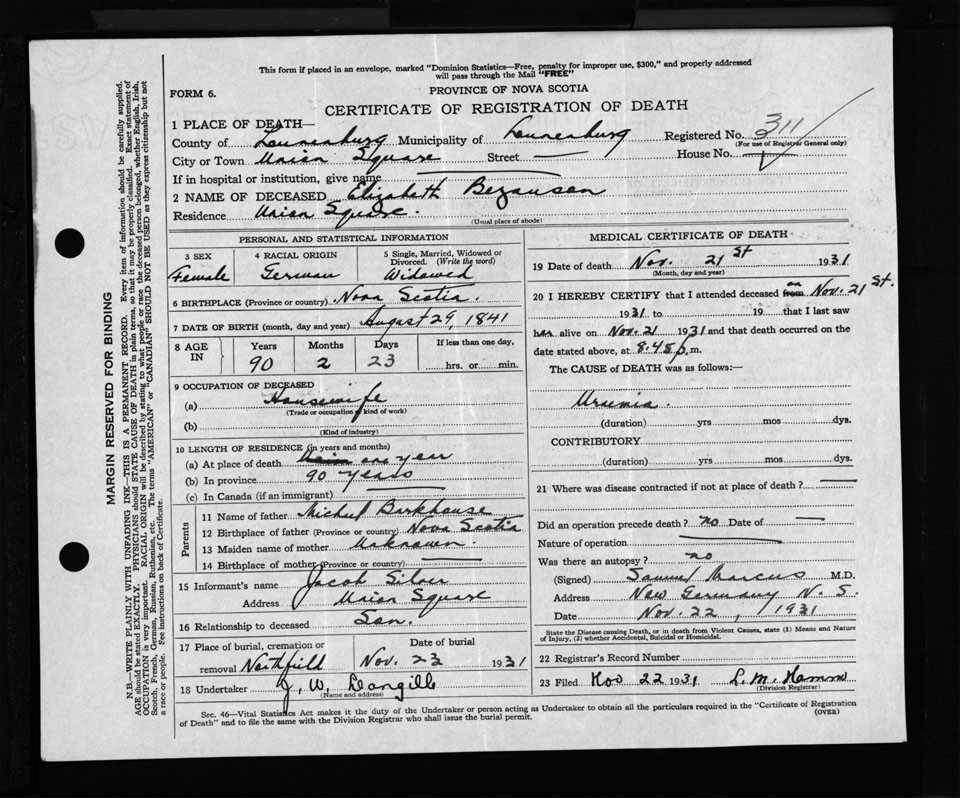 This form if placed in an envelope, marked "Dominion Statistics—Free, penalty for improper use, $300," and properly addressed
will pass through the Mail "FREE"
FORM 6.
PROVINCE OF NOVA SCOTIA
CERTIFICATE OF REGISTRATION OF DEATH
1 PLACE OF DEATH—
County of Lunenburg Municipality of Lunenburg Registered No. 311
(For use of Registrar General only)
City or Town Union Square Street — House No.
If in hospital or institution, give name
2 NAME OF DECEASED Elizabeth Bezanson
Residence Union Square.
(Usual place of abode)
PERSONAL AND STATISTICAL INFORMATION
3 SEX 4 RACIAL ORIGIN 5 Single, Married, Widowed or
Divorced. (Write the word)
Female German Widowed
6 BIRTHPLACE (Province or country) Nova Scotia.
7 DATE OF BIRTH (month, day and year) August 29, 1841
8 AGE IN Years Months Days If less than one day,
90 2 23 hrs. or min.
9 OCCUPATION OF DECEASED
(a) Housewife
(Trade or occupation or kind of work)
(b)
(Kind of industry)
10 LENGTH OF RESIDENCE (in years and months)
(a) At place of death one year
(b) In province 90 years
(c) In Canada (if an immigrant)
Parents
11 Name of father Michael Barkhouse
12 Birthplace of father (Province or country) Nova Scotia
13 Maiden name of mother Unknown.
14 Birthplace of mother (Province or country)
15 Informant's name Jacob Silver
Address Union Square
16 Relationship to deceased Son.
17 Place of burial, cremation or Date of burial
removal Northfield Nov. 23 1931
18 Undertaker J. W.
(Name and address)
MEDICAL CERTIFICATE OF DEATH
19 Date of death Nov. 21st 1931
(Month, day and year)
20 I HEREBY CERTIFY that I attended deceased from on Nov. 21st.
1931 to 19 that I last saw
her alive on Nov. 21 1931 and that death occurred on the
date stated above, at 8.45 p.m.
The CAUSE of DEATH was as follows:—
Uraemia.
(duration) yrs mos dys.
CONTRIBUTORY
(duration) yrs mos dys.
21 Where was disease contracted if not at place of death? —
Did an operation precede death? no Date of —
Nature of operation
Was there an autopsy? no
(Signed) Samuel Marcus M.D.
Address New Germany N. S.
Date Nov. 22, 1931
State the Disease causing Death, or in death from Violent Causes, state (1) Means and Nature
of Injury, (2) whether Accidental, Suicidal or Homicidal.
22 Registrar's Record Number
23 Filed Nov 22 1931 L. M.
(Division Registrar)
Sec. 46—Vital Statistics Act makes it the duty of the Undertaker or person acting as Undertaker to obtain all the particulars required in the "Certificate of Registration
of Death" and to file the same with the Division Registrar who shall issue the burial permit.
(OVER)
MARGIN RESERVED FOR BINDING
N.B.—WRITE PLAINLY WITH UNFADING INK—THIS IS A PERMANENT RECORD. Every item of information should be carefully supplied.
AGE should be stated EXACTLY. PHYSICIANS should STATE CAUSE OF DEATH in plain terms, so that it may be properly classified. Exact statement of
OCCUPATION is very important. RACIAL ORIGIN will be described by stating to what people or race the deceased person belonged, whether English, Irish,
Scotch, French, German, Russian, Ruthenian, etc. The terms "AMERICAN" or "CANADIAN" SHOULD NOT BE USED as they express citizenship but not
a race or people. Fee instructions on back of Certificate.